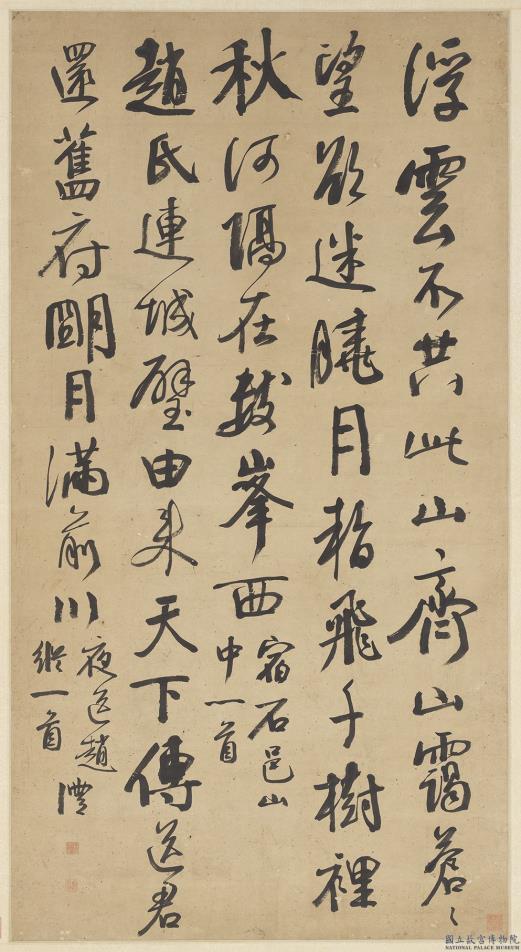 浮雲不共此山齊山靄蒼〻
望欲迷曉月暫飛千樹裡
秋河隔在數峯西
宿石邑山
中一首
趙氏連城璧由來天下傳送君
還舊府朙月滿前川
夜送趙
縱一首
澧
國立故宮博物院
NATIONAL PALACE MUSEUM